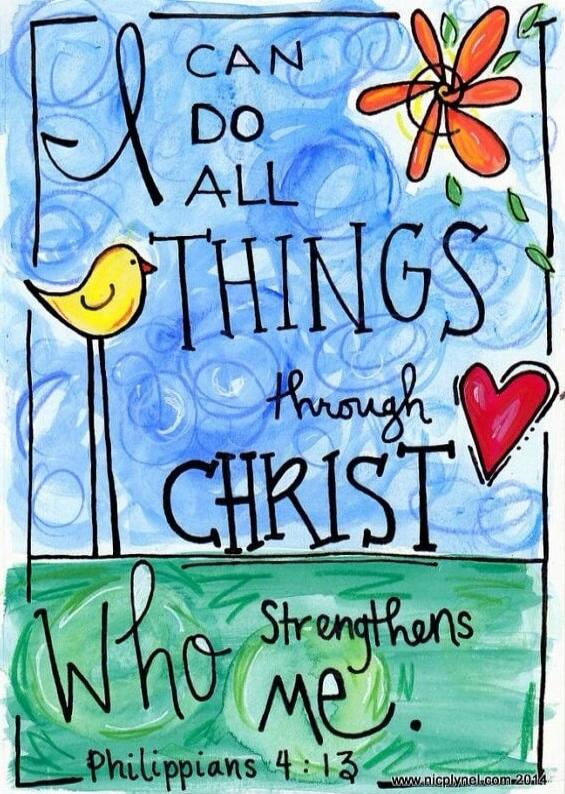 I CAN
DO
ALL
THINGS
through
CHRIST
Who Strengthens
Me.
Philippians 4:13
www.nicplynel.com 2014